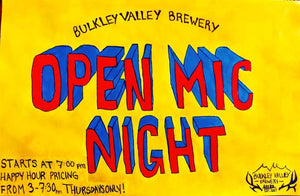 BULKLEY VALLEY BREWERY
OPEN MIC
NIGHT
STARTS AT 7:00 pm
HAPPY HOUR PRICING
FROM 3-7:30pm THURSDAYS ONLY!
BULKLEY VALLEY
BREWERY